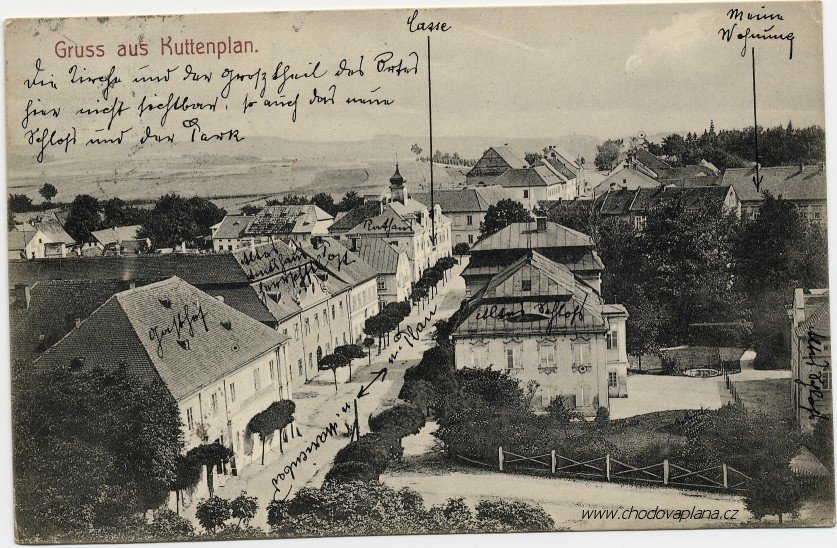 Gruss aus Kuttenplan.
Casse
Meine
Wohnung
Die Kirche und der Großtheil des Ortes
hier nicht sichtbar, so auch das neue
Schloß und der Park
Rathaus
Post
Gasthof
Altes Schloß
n. Plan
n. Marienbad
www.chodovaplana.cz